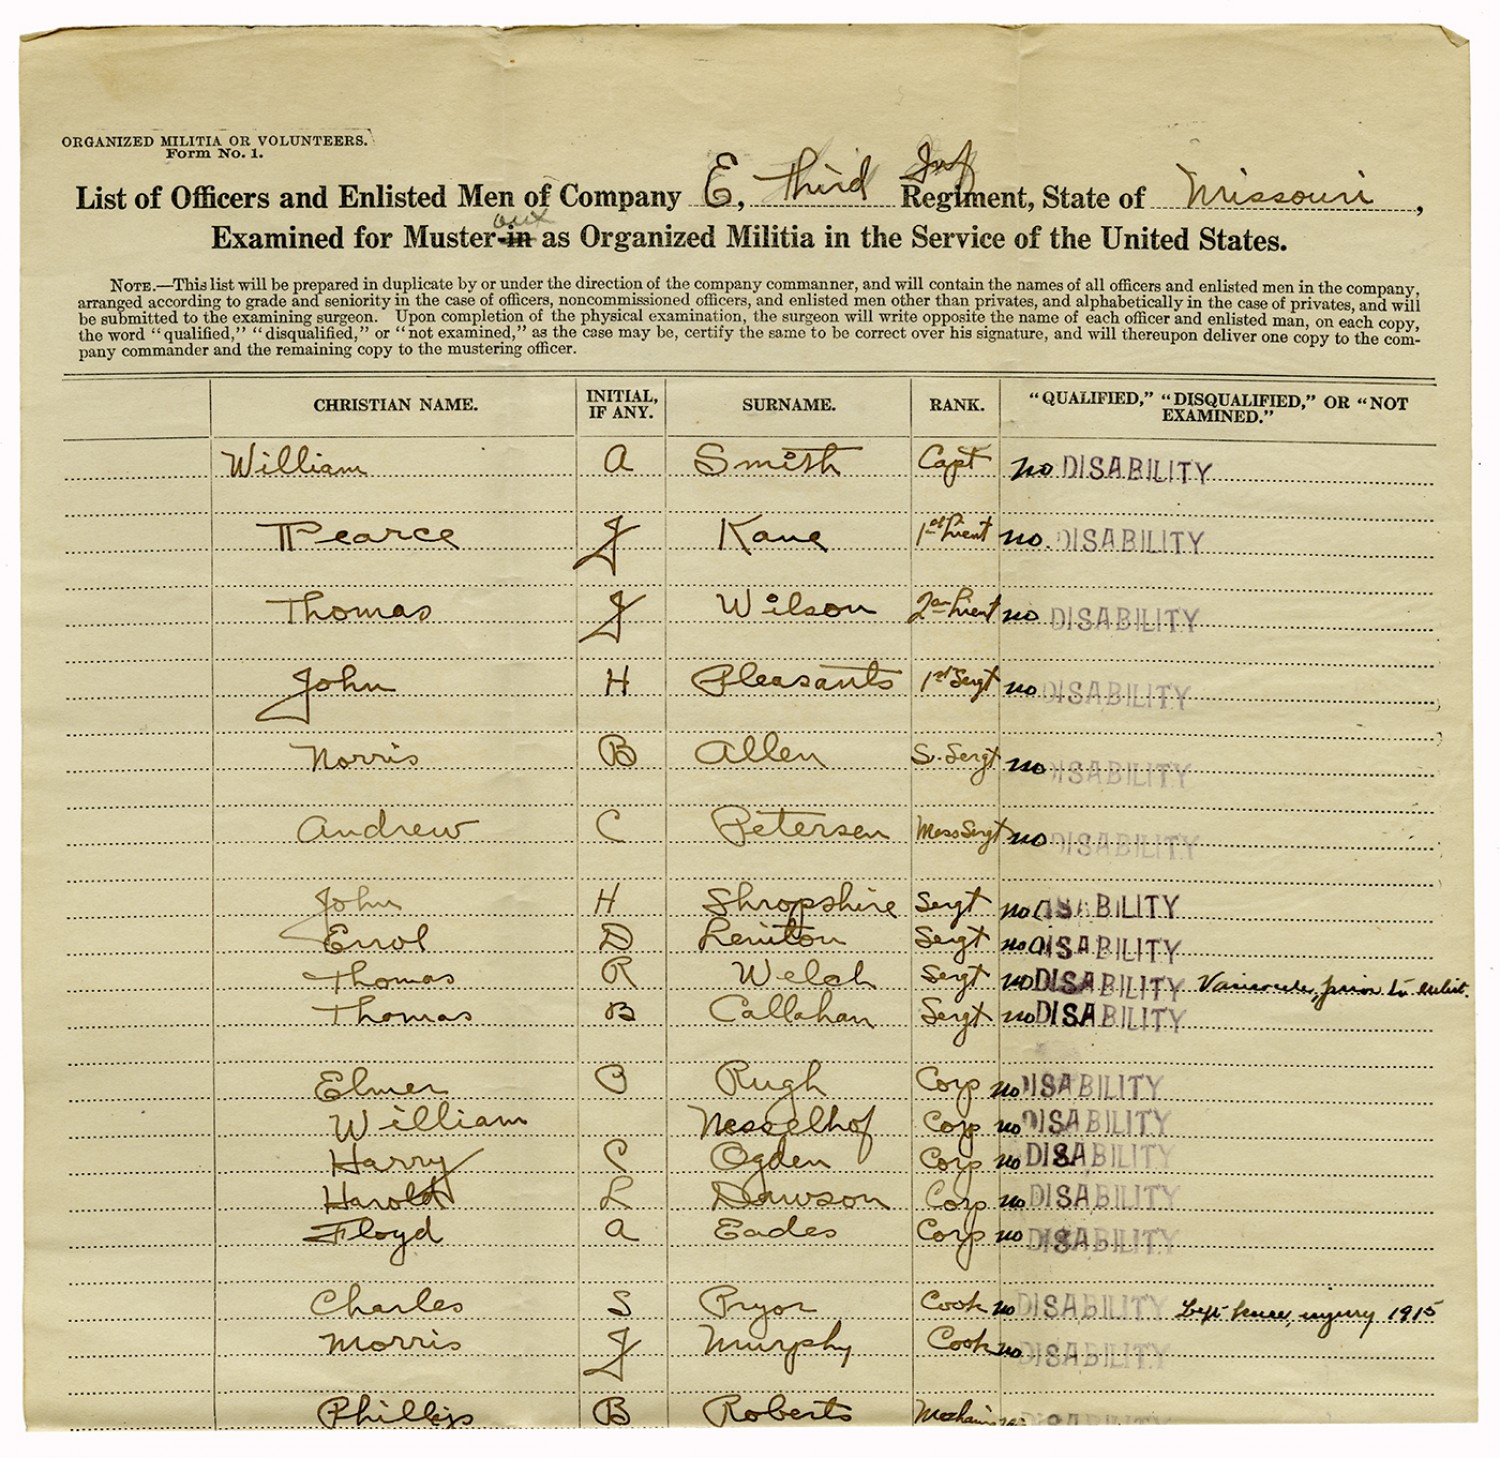 ORGANIZED MILITIA OR VOLUNTEERS.
Form No. 1.
List of Officers and Enlisted Men of Company E, Third Inf Regiment, State of Missouri,
out
Examined for Muster-in as Organized Militia in the Service of the United States.
NOTE.—This list will be prepared in duplicate by or under the direction of the company commanner, and will contain the names of all officers and enlisted men in the company,
arranged according to grade and seniority in the case of officers, noncommissioned officers, and enlisted men other than privates, and alphabetically in the case of privates, and will
be submitted to the examining surgeon. Upon completion of the physical examination, the surgeon will write opposite the name of each officer and enlisted man, on each copy,
the word "qualified," "disqualified," or "not examined," as the case may be, certify the same to be correct over his signature, and will thereupon deliver one copy to the com-
pany commander and the remaining copy to the mustering officer.
CHRISTIAN NAME. INITIAL, IF ANY. SURNAME. RANK. "QUALIFIED," "DISQUALIFIED," OR "NOT EXAMINED."
William A Smith Capt no DISABILITY
Pearce J Kane 1st Lieut no. DISABILITY
Thomas J Wilson 2nd Lieut no DISABILITY
John H Pleasants 1st Sergt no DISABILITY
Norris B Allen S. Sergt no DISABILITY
Andrew C Petersen Mess Sergt no DISABILITY
John H Shropshire Sergt no DISABILITY
Errol D Leniton Sergt no DISABILITY
Thomas R Welch Sergt no DISABILITY prior to enlist.
Thomas B Callahan Sergt no DISABILITY
Elmer O Rugh Corp no DISABILITY
William Nesselhof Corp no DISABILITY
Harry C Ogden Corp no DISABILITY
Harold L Dawson Corp no DISABILITY
Floyd A Eades Corp no DISABILITY
Charles S Pryor Cook no DISABILITY Left knee, injury 1915
Morris J Murphy Cook no DISABILITY
Phillips B Roberts Mechanic DISABILITY